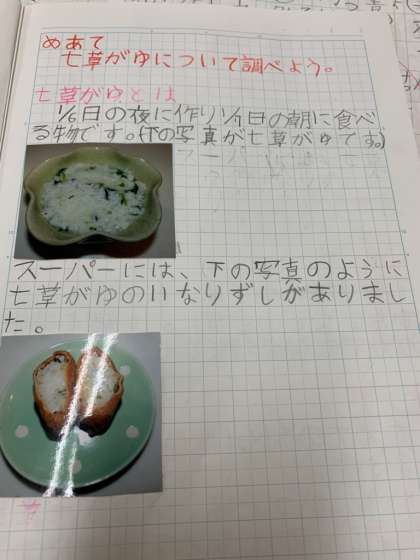 めあて
七草がゆについて調べよう。
七草がゆとは
1/6日の夜に作り1/7日の朝に食べ
る物です。(下の写真が七草がゆです。)
スーパーには、下の写真のように
七草がゆのいなりずしがありまし
た。